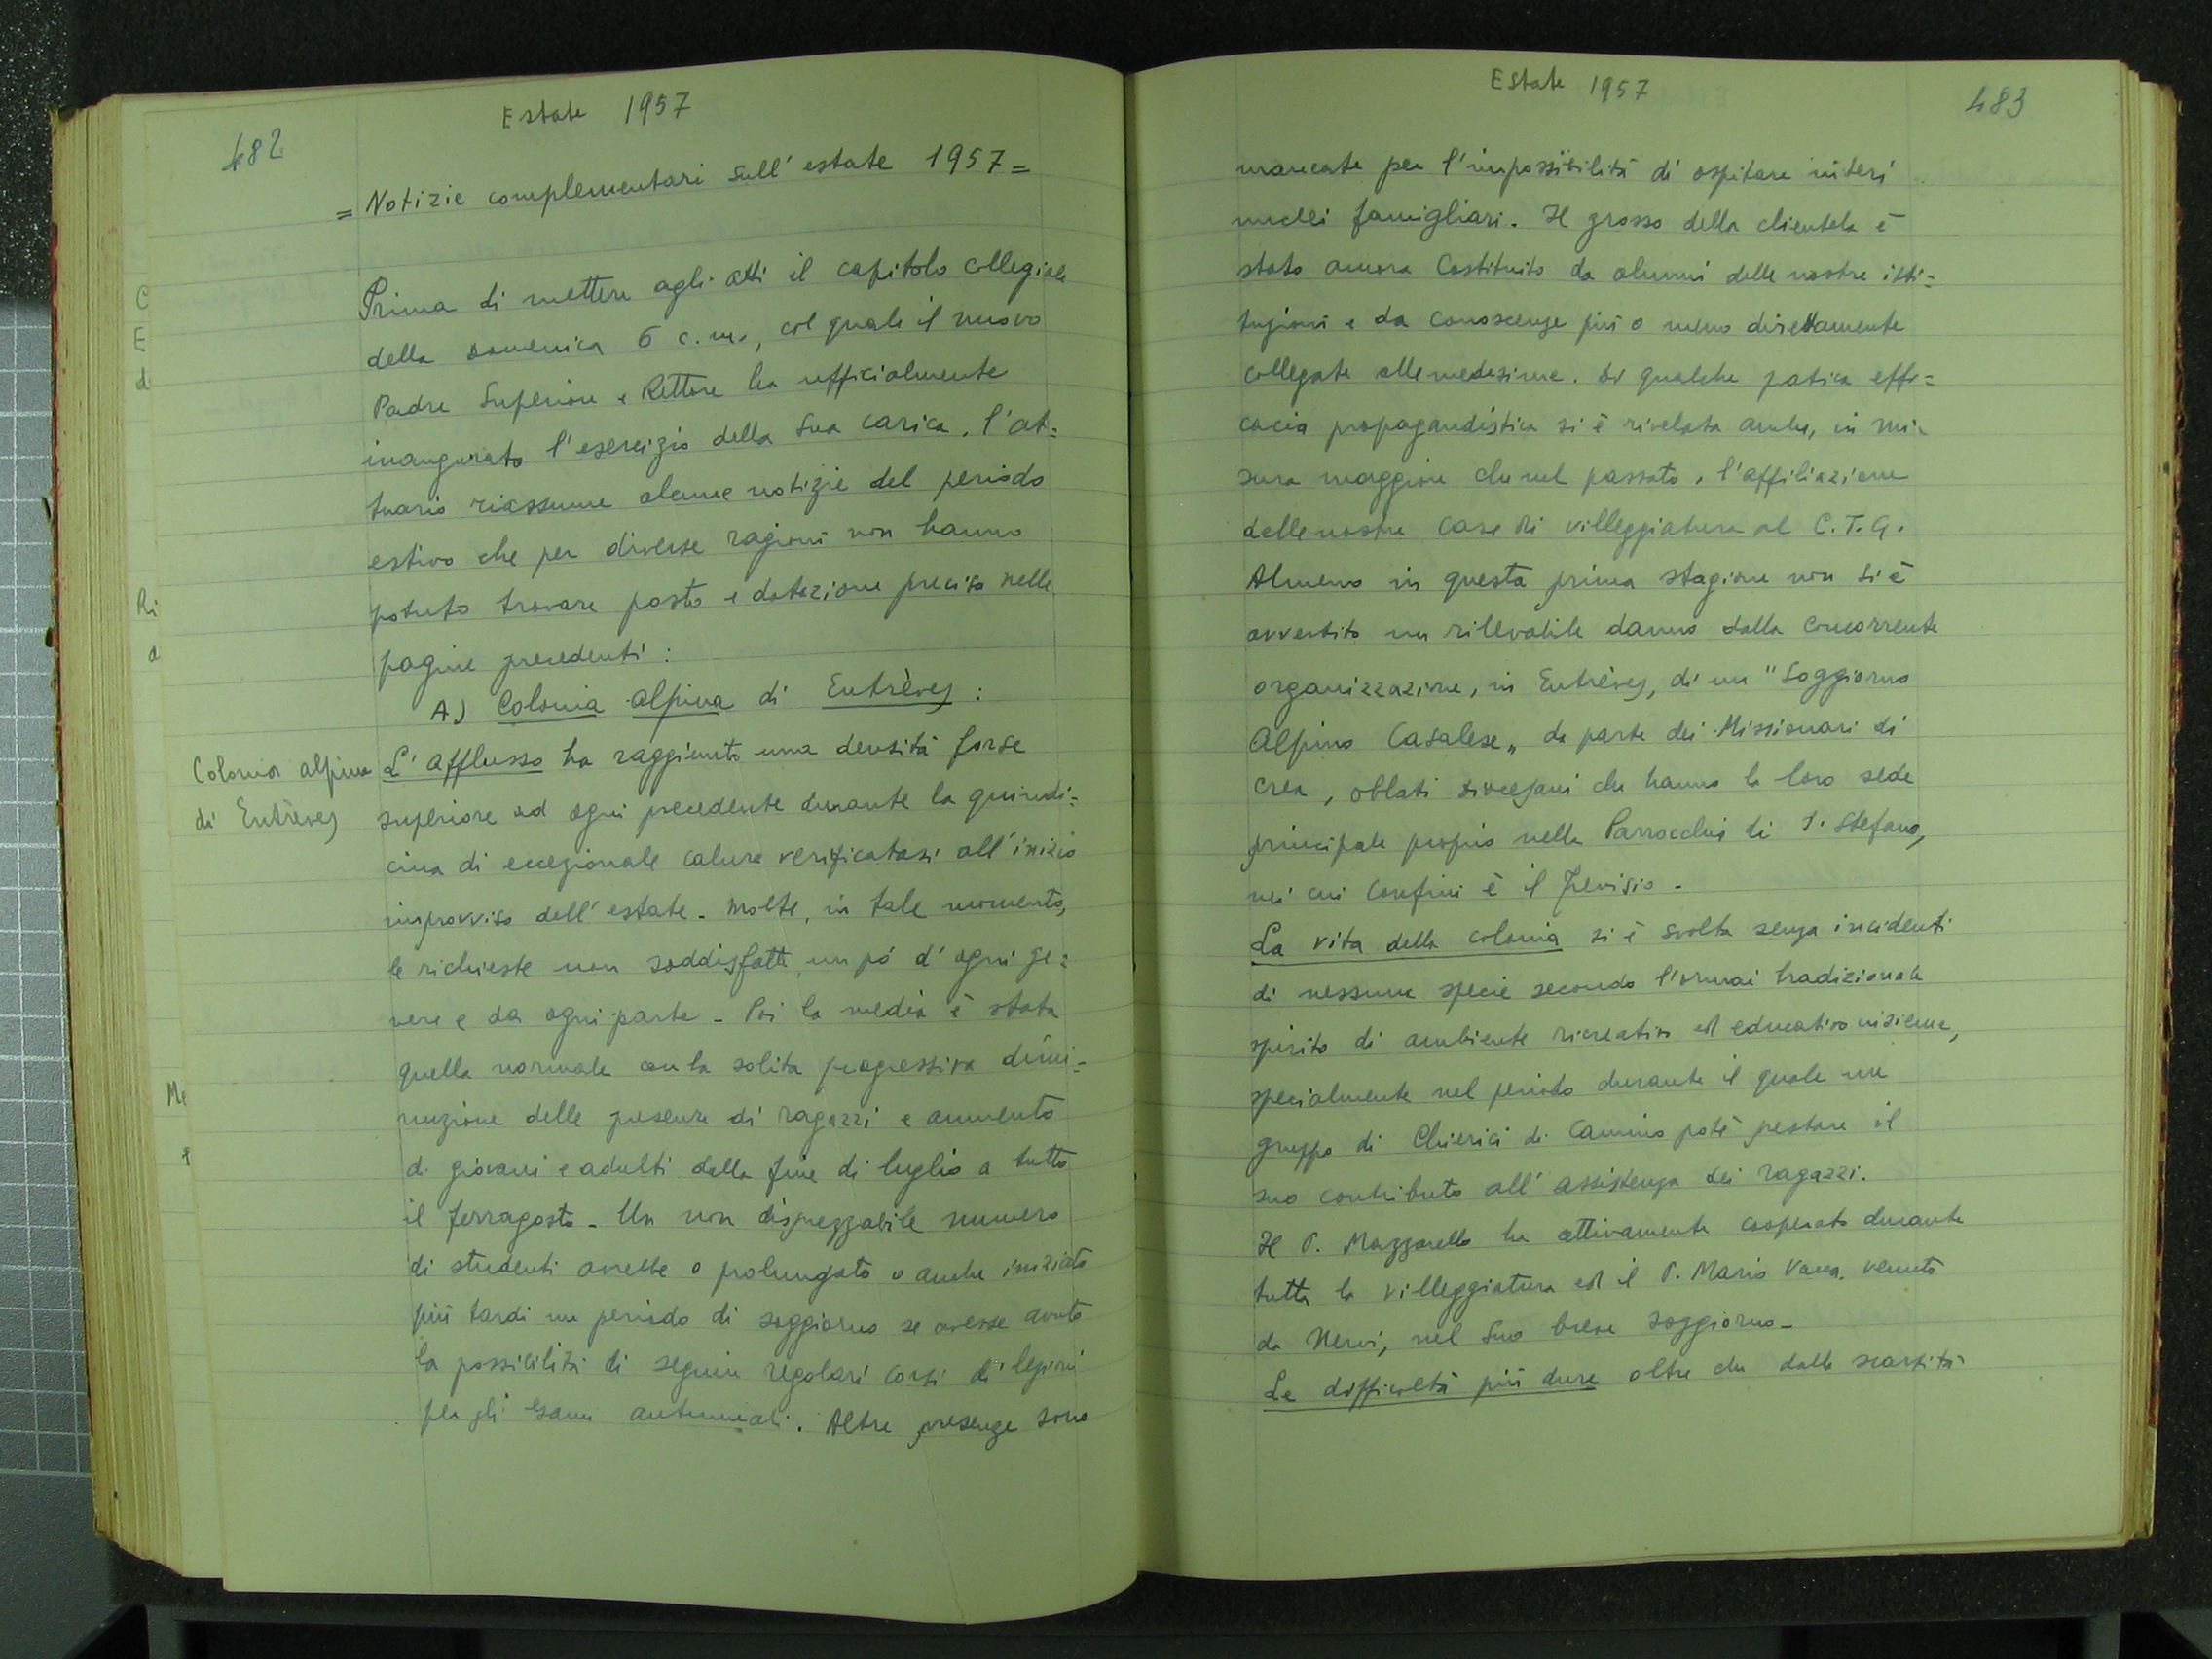 482
Estate 1957
= Notizie complementari sull'estate 1957 =
Prima di mettere agli atti il capitolo collegiale
della Domenica 6 c.m., col quale il nuovo
Padre Superiore e Rettore ha ufficialmente
inaugurato l'esercizio della sua carica, l'at=
tuario riassume alcune notizie del periodo
estivo che per diverse ragioni non hanno
potuto trovare posto e datazione precisa nelle
pagine precedenti:
A) Colonia alpina di Entrèves:
Colonia alpina
di Entrèves
L'afflusso ha raggiunto una densità forse
superiore ad ogni precedente durante la quindi=
cina di eccezionale calura verificatasi all'inizio
improvviso dell'estate. Molte, in tale momento,
le richieste non soddisfatte un pó d'ogni ge=
nere e da ogni parte. Poi la media è stata
quella normale con la solita progressiva dimi=
nuzione delle presenze di ragazzi e aumento
di giovani e adulti dalla fine di luglio a tutto
il ferragosto. Un non disprezzabile numero
di studenti avrebbe o prolungato o anche iniziato
più tardi un periodo di soggiorno se avesse avuto
la possibilità di seguire regolari corsi di lezioni
per gli esami autunnali. Altre presenze sono
C
E
d
Ri
a
Me
Estate 1957
483
mancate per l'impossibilità di ospitare interi
nuclei famigliari. Il grosso della clientela è
stato ancora costituito da alunni delle nostre isti=
tuzioni e da conoscenze più o meno direttamente
collegate alle medesime. Di qualche patica effi=
cacia propagandistica si è rivelata anche, in mi=
sura maggiore che nel passato, l'affiliazione
delle nostre case di villeggiatura al C.T.G.
Almeno in questa prima stagione non si è
avvertito un rilevabile danno dalla concorrente
organizzazione, in Entrèves, di un "Soggiorno
Alpino Casalese" da parte dei Missionari di
Crea, oblati diocesani che hanno la loro sede
principale proprio nella Parrocchia di S. Stefano,
nei cui confini è il Trevisio.
La vita della colonia si è svolta senza incidenti
di nessuna specie secondo l'ormai tradizionale
spirito di ambiente ricreativo ed educativo insieme,
specialmente nel periodo durante il quale un
gruppo di Chierici di Camino poté prestare il
suo contributo all'assistenza dei ragazzi.
Il P. Mazzarello ha attivamente cooperato durante
tutta la villeggiatura ed il P. Mario Vacca, venuto
da Nervi, nel suo breve soggiorno.
Le difficoltà più dure oltre che dalla scarsità